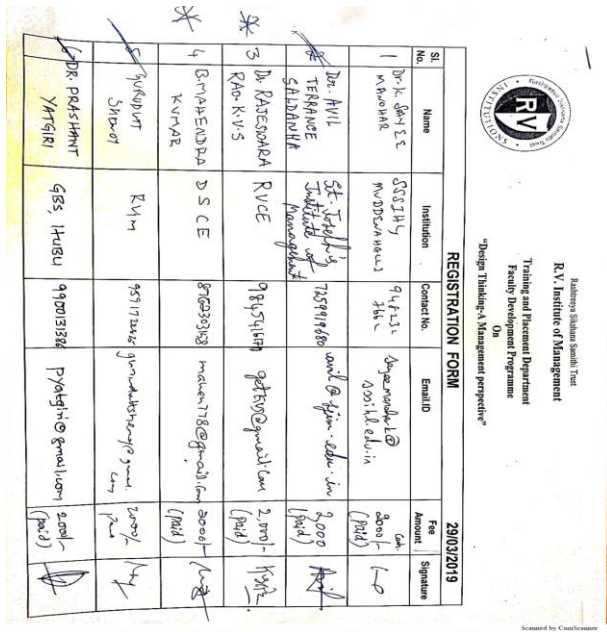 RV
INSTITUTIONS
Rashtreeya Sikshana Samithi Trust
R.V. Institute of Management
Training and Placement Department
Faculty Development Programme
On
"Design Thinking-A Management perspective"
REGISTRATION FORM 29/03/2019
Sl. No. Name Institution Contact No. Email.ID Fee Amount Signature
1 Dr. K SAYEE MANOHAR SSSIHL MUDDENAHALLI sayeemanohark@sssihl.edu.in Cash 2000/- (Paid)
2 Dr. AVIL TERRANCE SALDANHA St. Joseph's Institute of Management 7259919680 avil@sjim.edu.in 2,000 (Paid)
3 Dr. RAJESWARA RAO. K.V.S RVCE 2,000/- (Paid)
4 B. MAHENDRA KUMAR DSCE 8762303158 mahen778@gmail.com 2000/- (Paid)
5 GURUDUTT SHENOY RVIM 2000/-
6 DR. PRASHANT YATGIRI GBS, HUBLI 9900131386 pyatgiri@gmail.com 2000/- (Paid)
Scanned by CamScanner